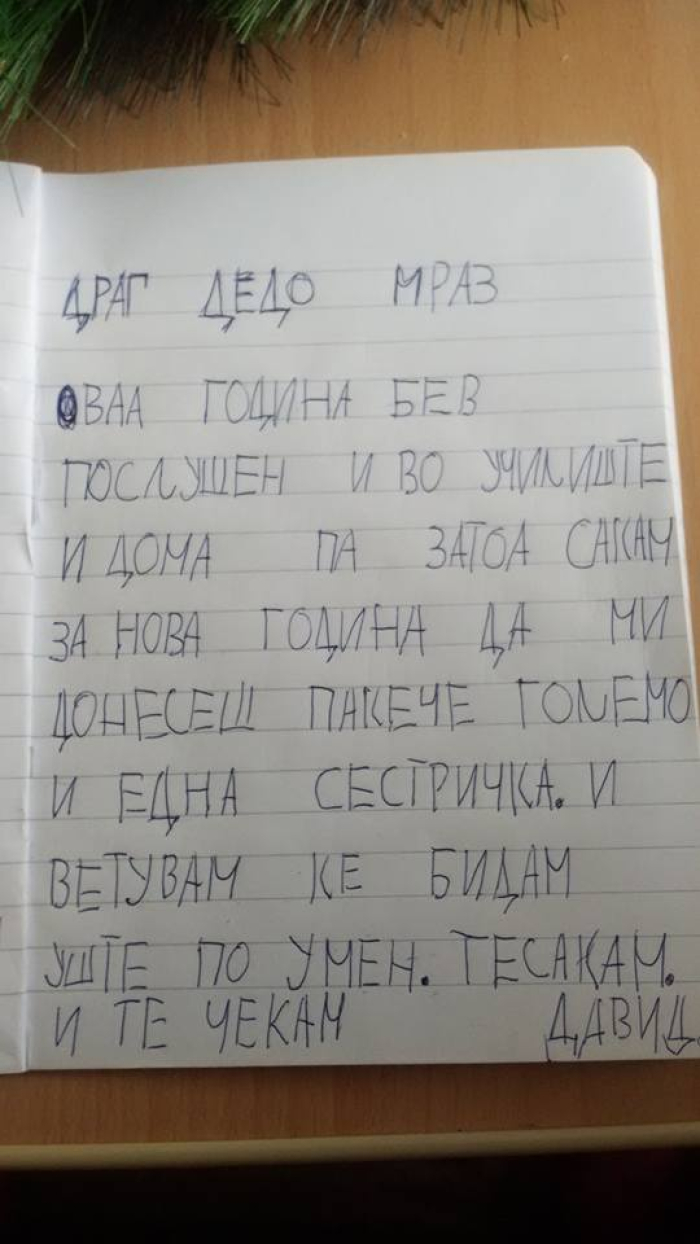 ДРАГ ДЕДО МРАЗ
ОВАА ГОДИНА БЕВ
ПОСЛУШЕН И ВО УЧИЛИШТЕ
И ДОМА ПА ЗАТОА САКАМ
ЗА НОВА ГОДИНА ДА МИ
ДОНЕСЕШ ПАКЕЧЕ ГОЛЕМО
И ЕДНА СЕСТРИЧКА. И
ВЕТУВАМ КЕ БИДАМ
УШТЕ ПО УМЕН. ТЕСАКАМ.
И ТЕ ЧЕКАМ ДАВИД.